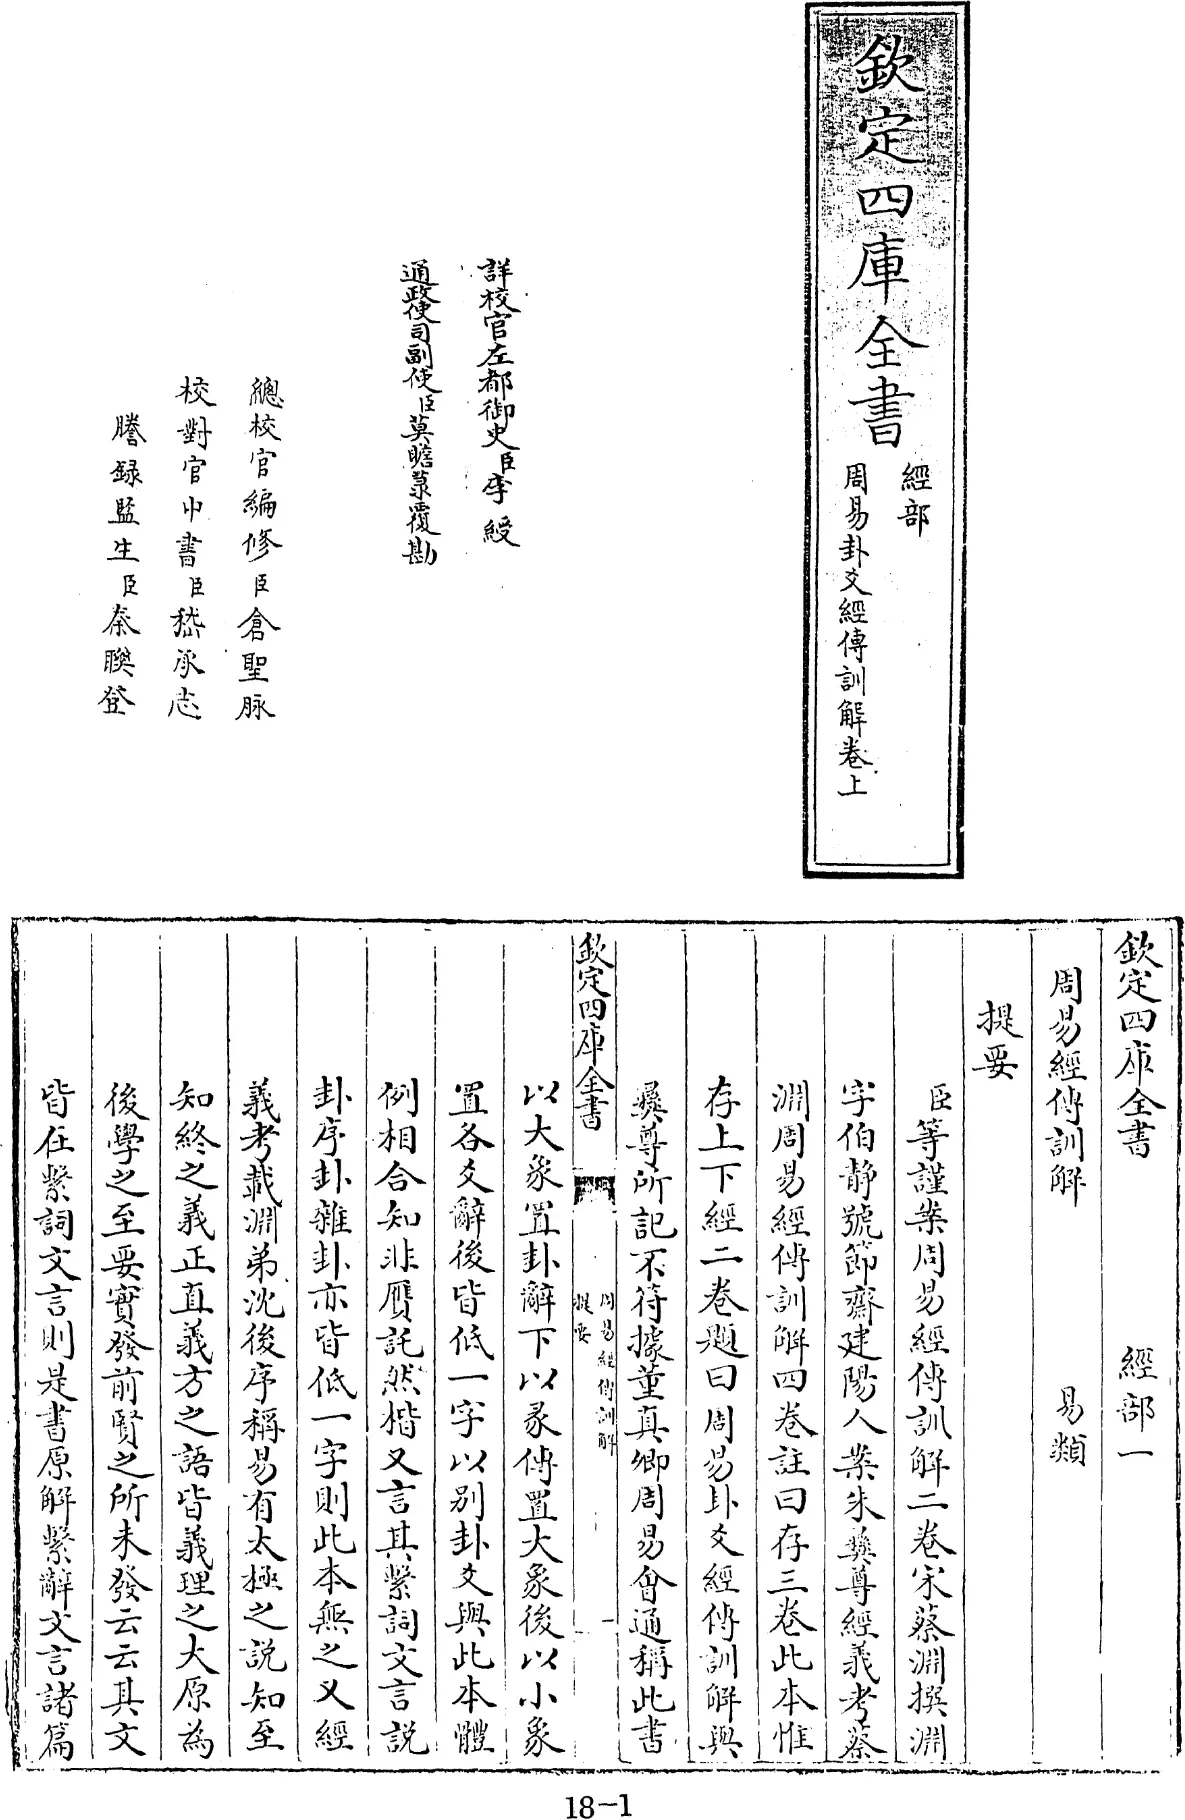 欽定四庫全書
經部
周易卦爻經傳訓解卷上
詳校官左都御史臣李綬
通政使司副使臣莫瞻菉覆勘
總校官編修臣倉聖脉
校對官中書臣嵇承志
謄録監生臣秦聯登
欽定四庫全書 經部一
周易經傳訓解 易類
提要
臣等謹案周易經傳訓解二卷宋蔡淵撰淵
字伯静號節齋建陽人案朱彝尊經義考蔡
淵周易經傳訓解四卷註曰存三卷此本惟
存上下經二卷題曰周易卦爻經傳訓解與
彝尊所記不符據董真卿周易會通稱此書
欽定四庫全書
周易經傳訓解
提要
一
以大象置卦辭下以彖傳置大象後以小象
置各爻辭後皆低一字以别卦爻與此本體
例相合知非贋託然楷又言其繫詞文言説
卦序卦雜卦亦皆低一字則此本無之又經
義考載淵弟沈後序稱易有太極之説知至
知終之義正直義方之語皆義理之大原為
後學之至要實發前賢之所未發云云其文
皆在繫詞文言則是書原解繫辭文言諸篇
18-1